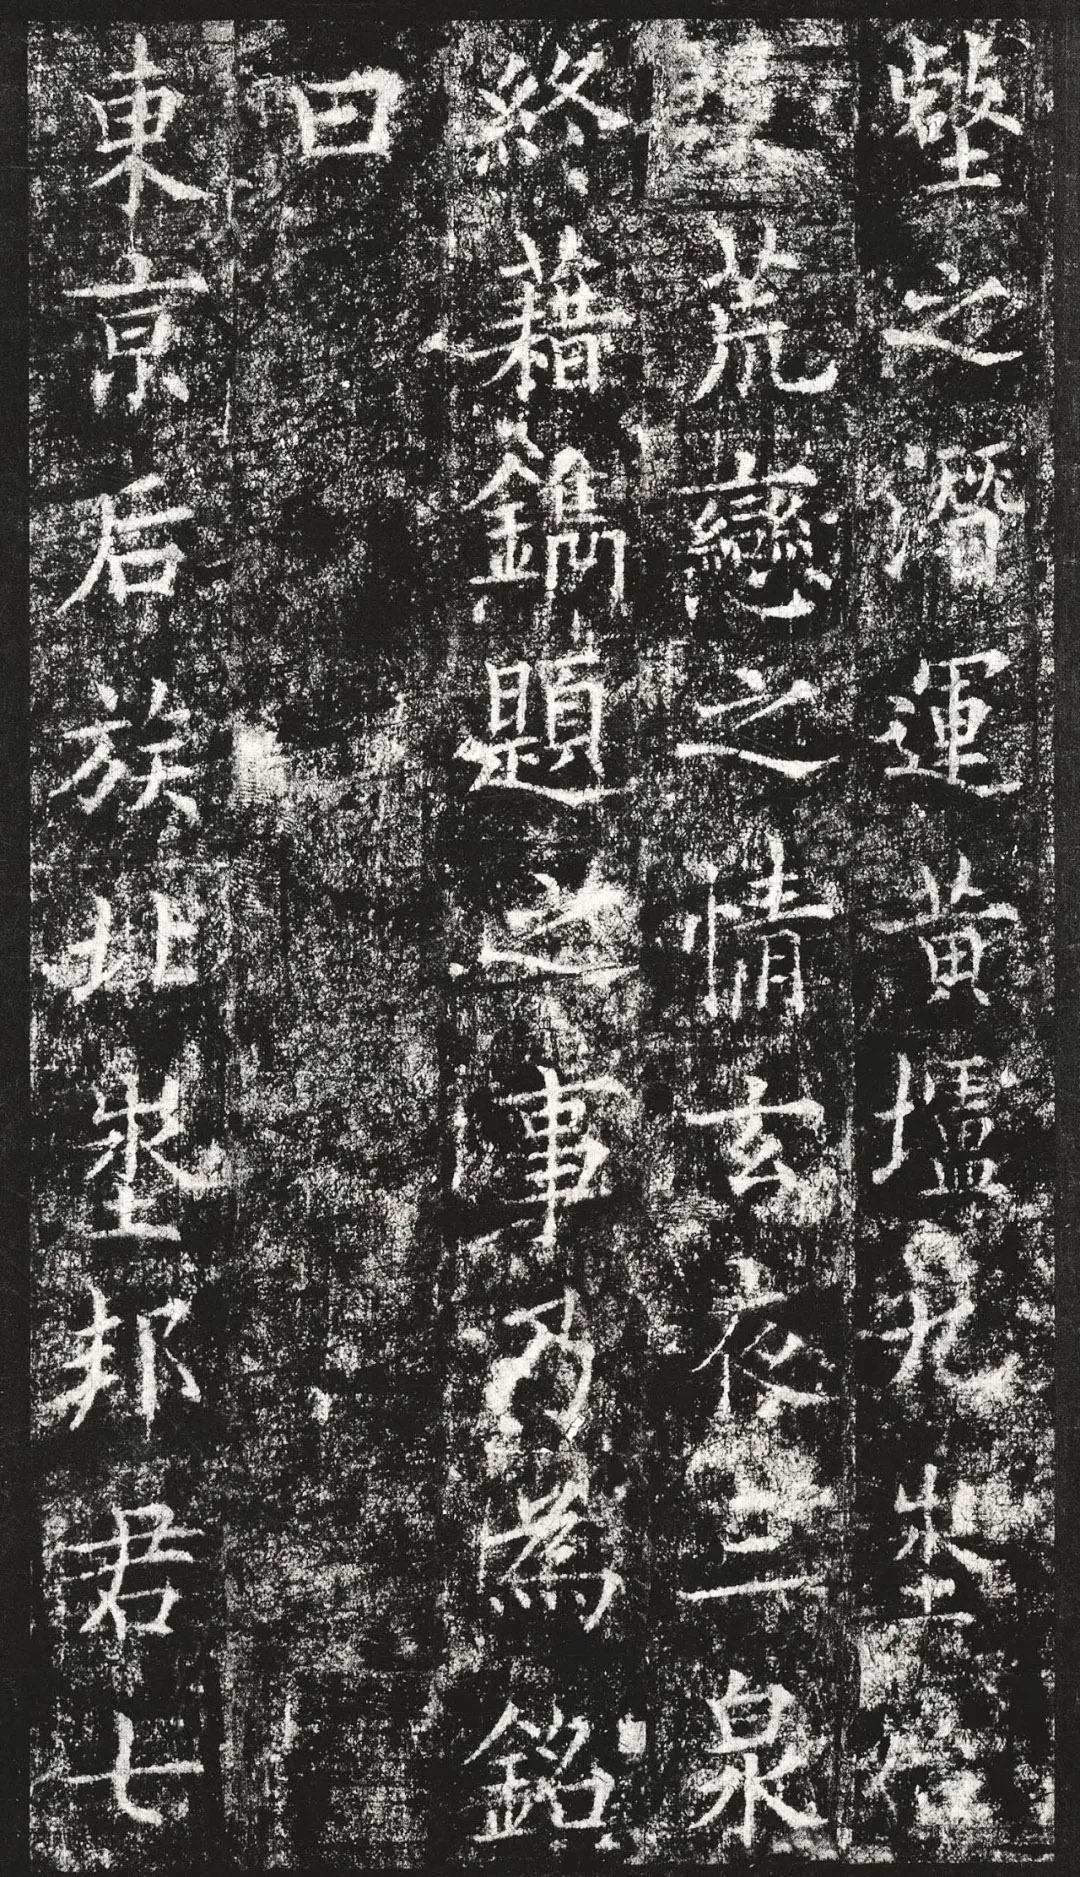 壑之潛運黃壚九埊
荒戀之情玄夜三泉
終藉鐫題之事乃為銘
曰
東京后族北埊邦君七